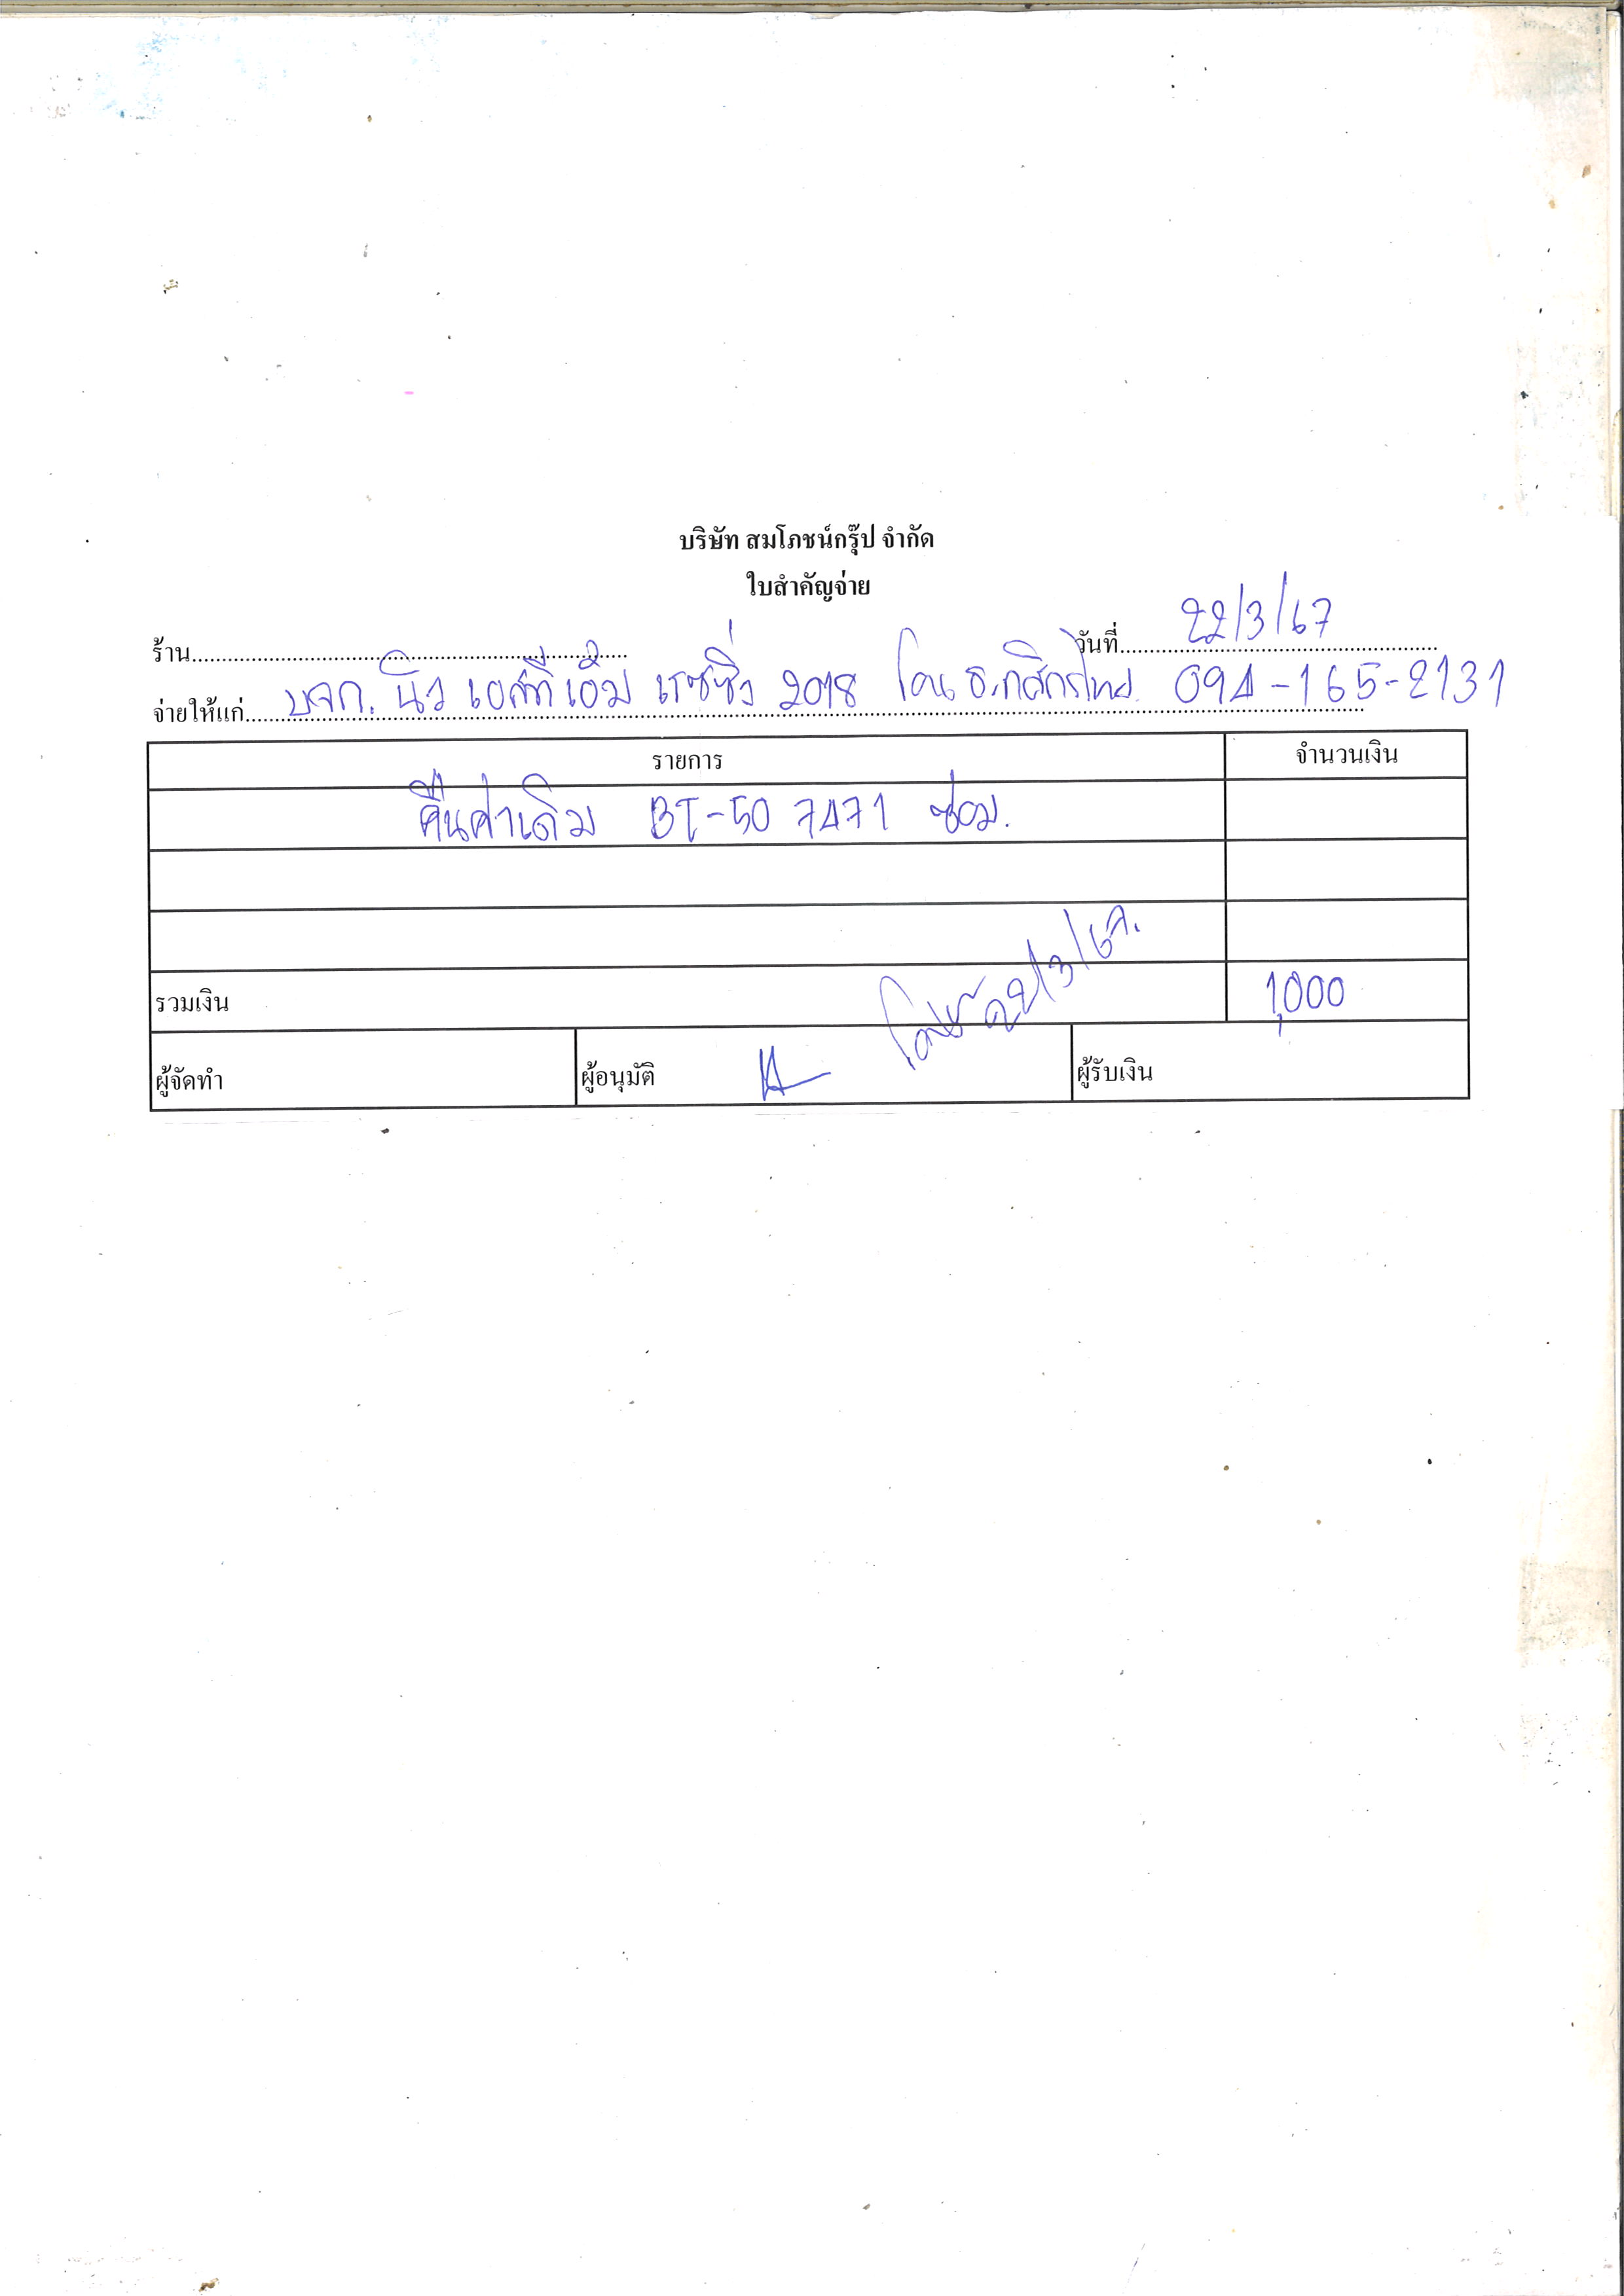 บริษัท สมโภชน์กรุ๊ป จำกัด
ใบสำคัญจ่าย
ร้าน........................ วันที่ 22/3/67
จ่ายให้แก่ บจก. นิว เอสทีเอ็ม เรซซิ่ง 2018 โอน ธ.กสิกรไทย 094-165-2131
รายการ จำนวนเงิน
คืนค่าเดิม BT-50 7471 ซ่อม.
รวมเงิน 1,000
22/3/67.
ผู้จัดทำ ผู้อนุมัติ ผู้รับเงิน